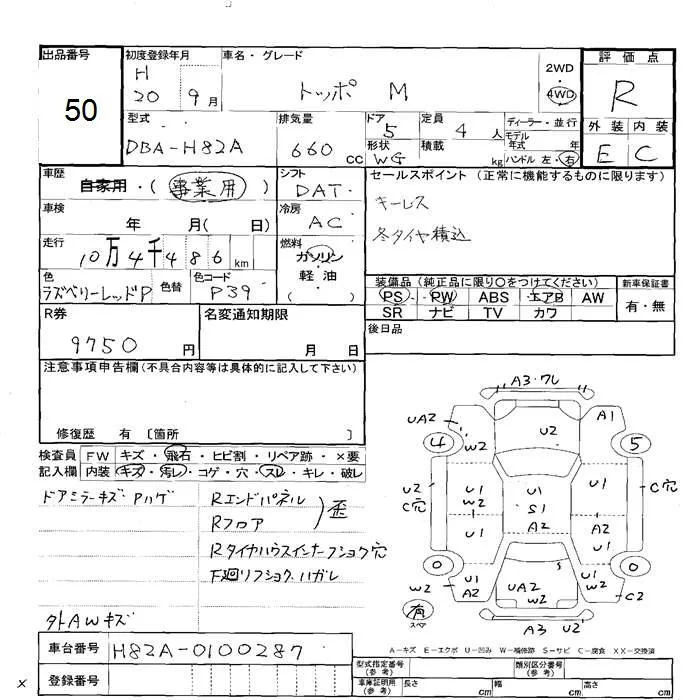 出品番号
50
初度登録年月
H
20 9月
車名・グレード
トッポ M
2WD
4WD
評価点
R
外装 内装
E C
型式
DBA-H82A
排気量
660 cc
ドア
5
形状
WG
定員
4 人
積載
kg
ディーラー・並行
モデル
年式 年
ハンドル 左・右
車歴
自家用・(事業用)
シフト
DAT
セールスポイント (正常に機能するものに限ります)
キーレス
冬タイヤ積込
車検
年 月( 日)
冷房
AC
走行
10万4千486km
燃料
ガソリン
軽油
( )
色
ラズベリーレッドP
色替
色コード
P39
装備品(純正品に限り○をつけてください)
PS PW ABS エアB AW
SR ナビ TV カワ
新車保証書
有・無
R券
9750 円
名変通知期限
月 日
後日品
注意事項申告欄(不具合内容等は具体的に記入して下さい)
修復歴 有 〔箇所 〕
検査員
記入欄
FW キズ・飛石・ヒビ割・リペア跡・×要
内装 キズ・汚レ・コゲ・穴・スレ・キレ・破レ
ドアミラーキズ・Pハゲ
Rエンドパネル
Rフロア
歪
Rタイヤハウスインナーフショク穴
F廻リフショク、ハガレ
外AWキズ
A3・フレ
UA2
A1
4
W2
U2
5
U2
C穴
U1
W2
U1
S1
A2
U1
C穴
U1
A2
U1
0
0
W2
U1
A2
UA2
W2
S
U1
W2
C2
有
スペア
A3 U2
A－キズ E－エクボ U－凹み W－補修跡 S－サビ C－腐食 XX－交換済
車台番号
H82A-0100287
登録番号
型式指定番号
(参考)
類別区分番号
(参考)
車庫証明用
(参考)
長さ cm
幅 cm
高さ cm
x